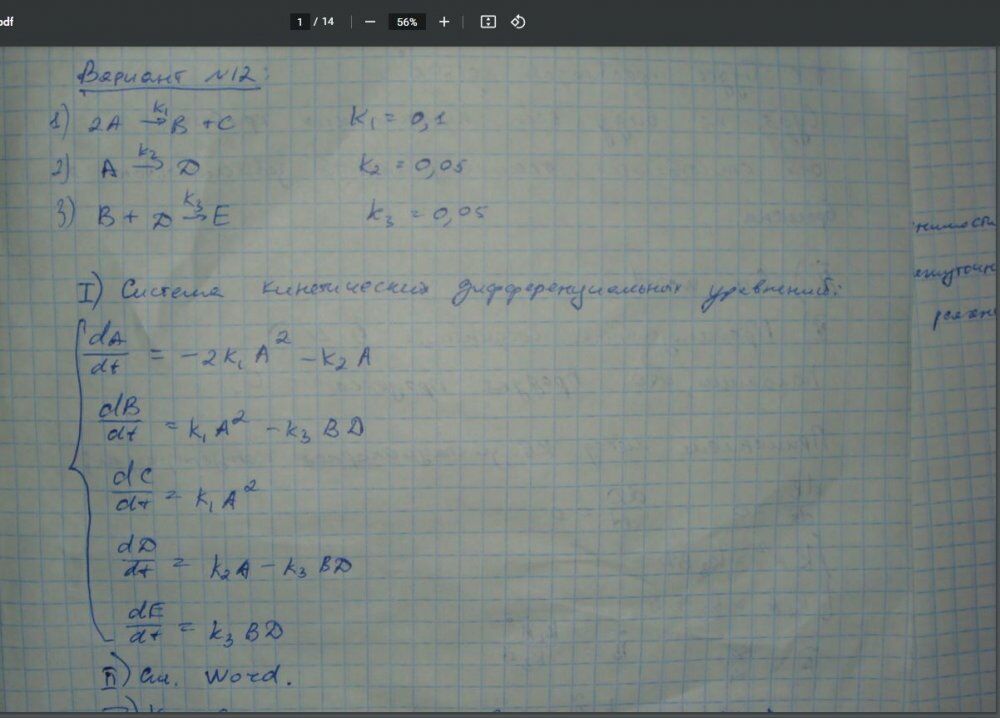 pdf 1 / 14 56%
Вариант №12:
1) 2A k₁→ B + C k₁ = 0,1
2) A k₂→ D k₂ = 0,05
3) B + D k₃→ E k₃ = 0,05
I) Система кинетических дифференциальных уравнений:
dA/dt = -2k₁A² - k₂A
dB/dt = k₁A² - k₃BD
dC/dt = k₁A²
dD/dt = k₂A - k₃BD
dE/dt = k₃BD
II) См. Word.